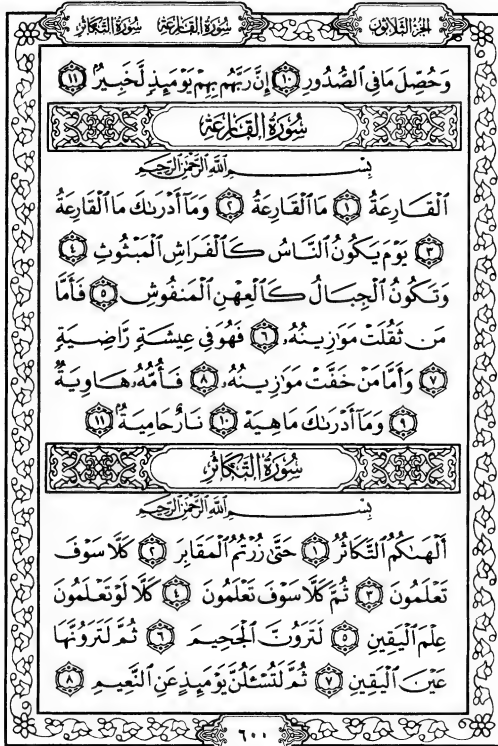 الجزء الثلاثون سورة القارعة سورة التكاثر
وَحُصِّلَ مَا فِي ٱلصُّدُورِ ١٠ إِنَّ رَبَّهُم بِهِمْ يَوْمَئِذٍ لَّخَبِيرٌۢ ١١
سُورَةُ القَارِعَةِ
بِسْمِ ٱللَّهِ ٱلرَّحْمَٰنِ ٱلرَّحِيمِ
ٱلْقَارِعَةُ ١ مَا ٱلْقَارِعَةُ ٢ وَمَآ أَدْرَىٰكَ مَا ٱلْقَارِعَةُ
٣ يَوْمَ يَكُونُ ٱلنَّاسُ كَٱلْفَرَاشِ ٱلْمَبْثُوثِ ٤
وَتَكُونُ ٱلْجِبَالُ كَٱلْعِهْنِ ٱلْمَنفُوشِ ٥ فَأَمَّا
مَن ثَقُلَتْ مَوَٰزِينُهُۥ ٦ فَهُوَ فِى عِيشَةٍ رَّاضِيَةٍ
٧ وَأَمَّا مَنْ خَفَّتْ مَوَٰزِينُهُۥ ٨ فَأُمُّهُۥ هَاوِيَةٌ
٩ وَمَآ أَدْرَىٰكَ مَا هِيَهْ ١٠ نَارٌ حَامِيَةٌۢ ١١
سُورَةُ التَّكَاثُرِ
بِسْمِ ٱللَّهِ ٱلرَّحْمَٰنِ ٱلرَّحِيمِ
أَلْهَىٰكُمُ ٱلتَّكَاثُرُ ١ حَتَّىٰ زُرْتُمُ ٱلْمَقَابِرَ ٢ كَلَّا سَوْفَ
تَعْلَمُونَ ٣ ثُمَّ كَلَّا سَوْفَ تَعْلَمُونَ ٤ كَلَّا لَوْ تَعْلَمُونَ
عِلْمَ ٱلْيَقِينِ ٥ لَتَرَوُنَّ ٱلْجَحِيمَ ٦ ثُمَّ لَتَرَوُنَّهَا
عَيْنَ ٱلْيَقِينِ ٧ ثُمَّ لَتُسْـَٔلُنَّ يَوْمَئِذٍ عَنِ ٱلنَّعِيمِ ٨
٦٠٠